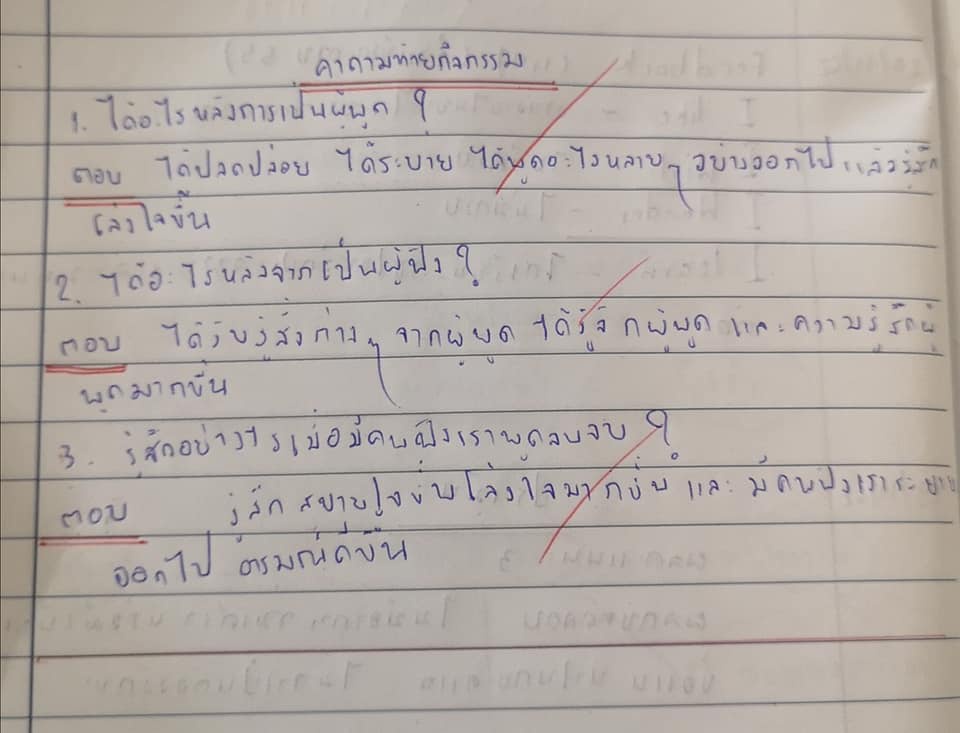 คำถามท้ายกิจกรรม
1. ได้อะไรหลังการเป็นผู้พูด ?
ตอบ ได้ปลดปล่อย ได้ระบาย ได้พูดอะไรหลายๆ อย่างออกไป แล้วรู้สึก
โล่งใจขึ้น
2. ได้อะไรหลังจากเป็นผู้ฟัง ?
ตอบ ได้รับรู้สิ่งต่างๆ จากผู้พูด ได้รู้จักผู้พูด และความรู้สึกผู้
พูดมากขึ้น
3. รู้สึกอย่างไรเมื่อมีคนฟังเราพูดจนจบ ?
ตอบ รู้สึกสบายใจขึ้น โล่งใจมากขึ้น และ มีคนฟังเราระบาย
ออกไป อารมณ์ดีขึ้น